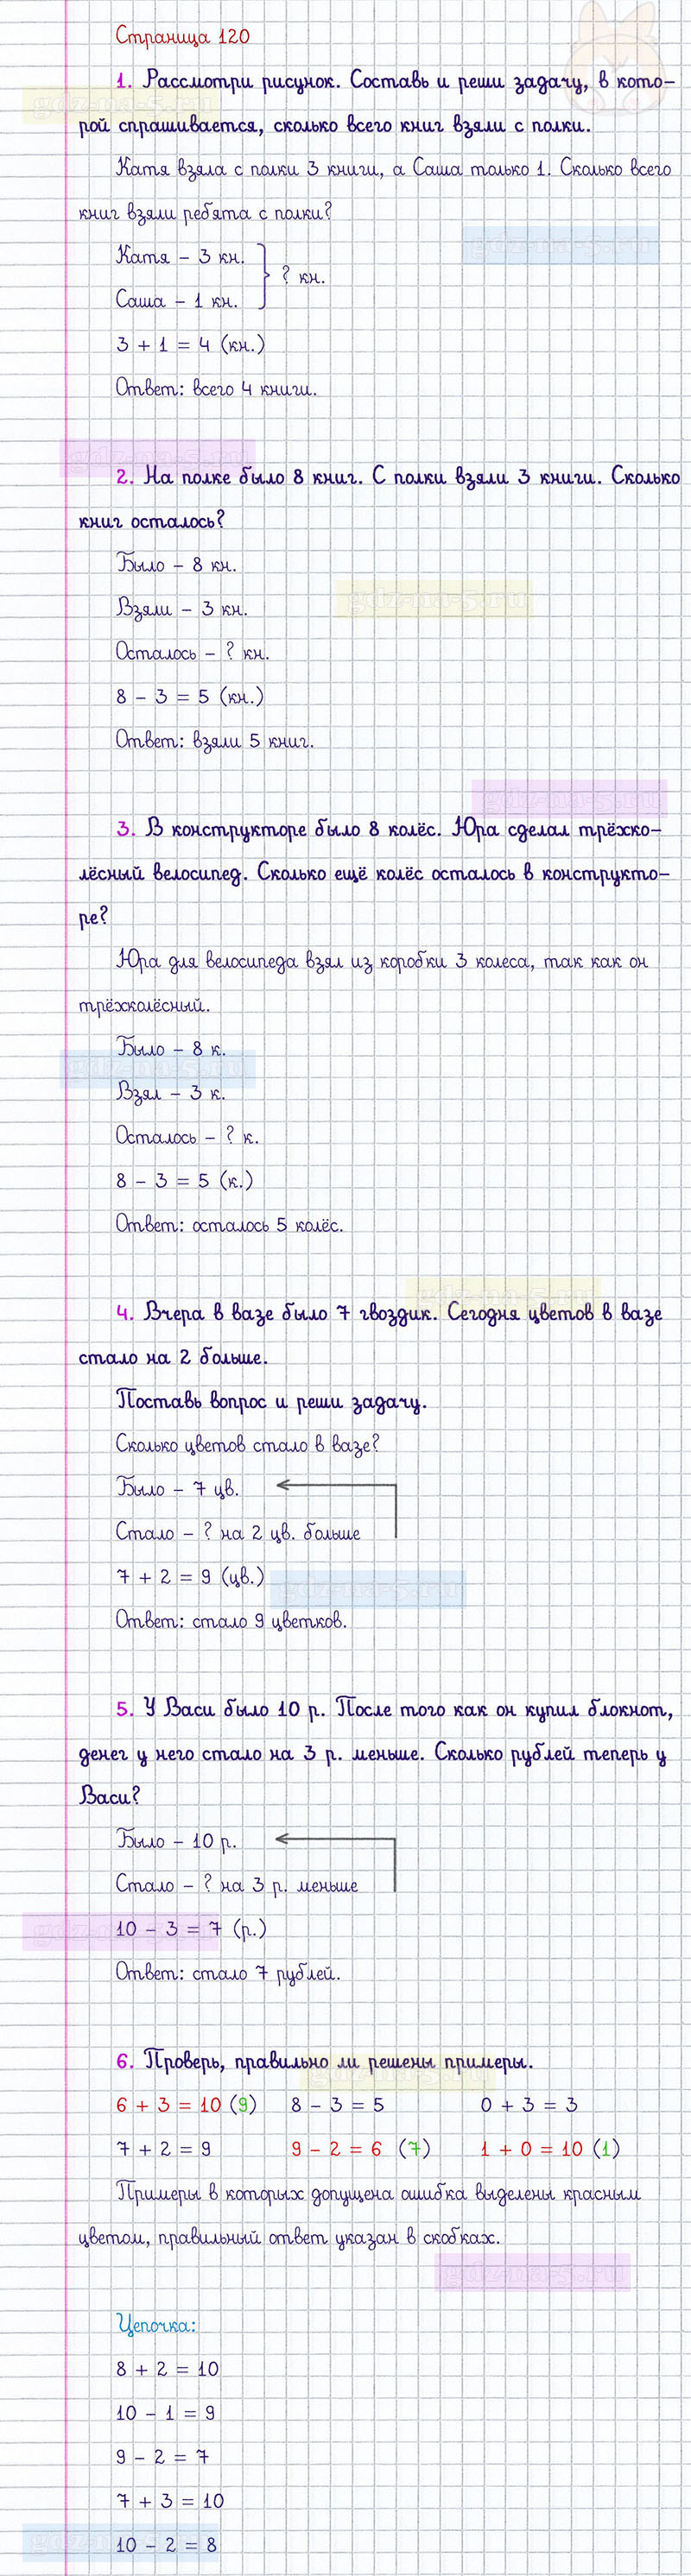 Страница 120
1. Рассмотри рисунок. Составь и реши задачу, в кото-
gdz-na-5.ru
рой спрашивается, сколько всего книг взяли с полки.
Катя взяла с полки 3 книги, а Саша только 1. Сколько всего
книг взяли ребята с полки?
gdz-na-5.ru
Катя – 3 кн.
? кн.
Саша – 1 кн.
3 + 1 = 4 (кн.)
Ответ: всего 4 книги.
gdz-na-5.ru
2. На полке было 8 книг. С полки взяли 3 книги. Сколько
книг осталось?
Было – 8 кн.
gdz-na-5.ru
Взяли – 3 кн.
Осталось – ? кн.
8 – 3 = 5 (кн.)
Ответ: взяли 5 книг.
gdz-na-5.ru
3. В конструкторе было 8 колёс. Юра сделал трёхко-
лёсный велосипед. Сколько ещё колёс осталось в конструкто-
ре?
Юра для велосипеда взял из коробки 3 колеса, так как он
трёхколёсный.
Было – 8 к.
gdz-na-5.ru
Взял – 3 к.
Осталось – ? к.
8 – 3 = 5 (к.)
Ответ: осталось 5 колёс.
gdz-na-5.ru
4. Вчера в вазе было 7 гвоздик. Сегодня цветов в вазе
стало на 2 больше.
Поставь вопрос и реши задачу.
Сколько цветов стало в вазе?
Было – 7 цв.
Стало – ? на 2 цв. больше
7 + 2 = 9 (цв.)
gdz-na-5.ru
Ответ: стало 9 цветков.
5. У Васи было 10 р. После того как он купил блокнот,
денег у него стало на 3 р. меньше. Сколько рублей теперь у
Васи?
Было – 10 р.
Стало – ? на 3 р. меньше
10 – 3 = 7 (р.)
gdz-na-5.ru
Ответ: стало 7 рублей.
6. Проверь, правильно ли решены примеры.
gdz-na-5.ru
6 + 3 = 10 (9) 8 – 3 = 5 0 + 3 = 3
7 + 2 = 9 9 – 2 = 6 (7) 1 + 0 = 10 (1)
Примеры в которых допущена ошибка выделены красным
цветом, правильный ответ указан в скобках.
gdz-na-5.ru
Цепочка:
8 + 2 = 10
10 – 1 = 9
9 – 2 = 7
7 + 3 = 10
10 – 2 = 8
gdz-na-5.ru